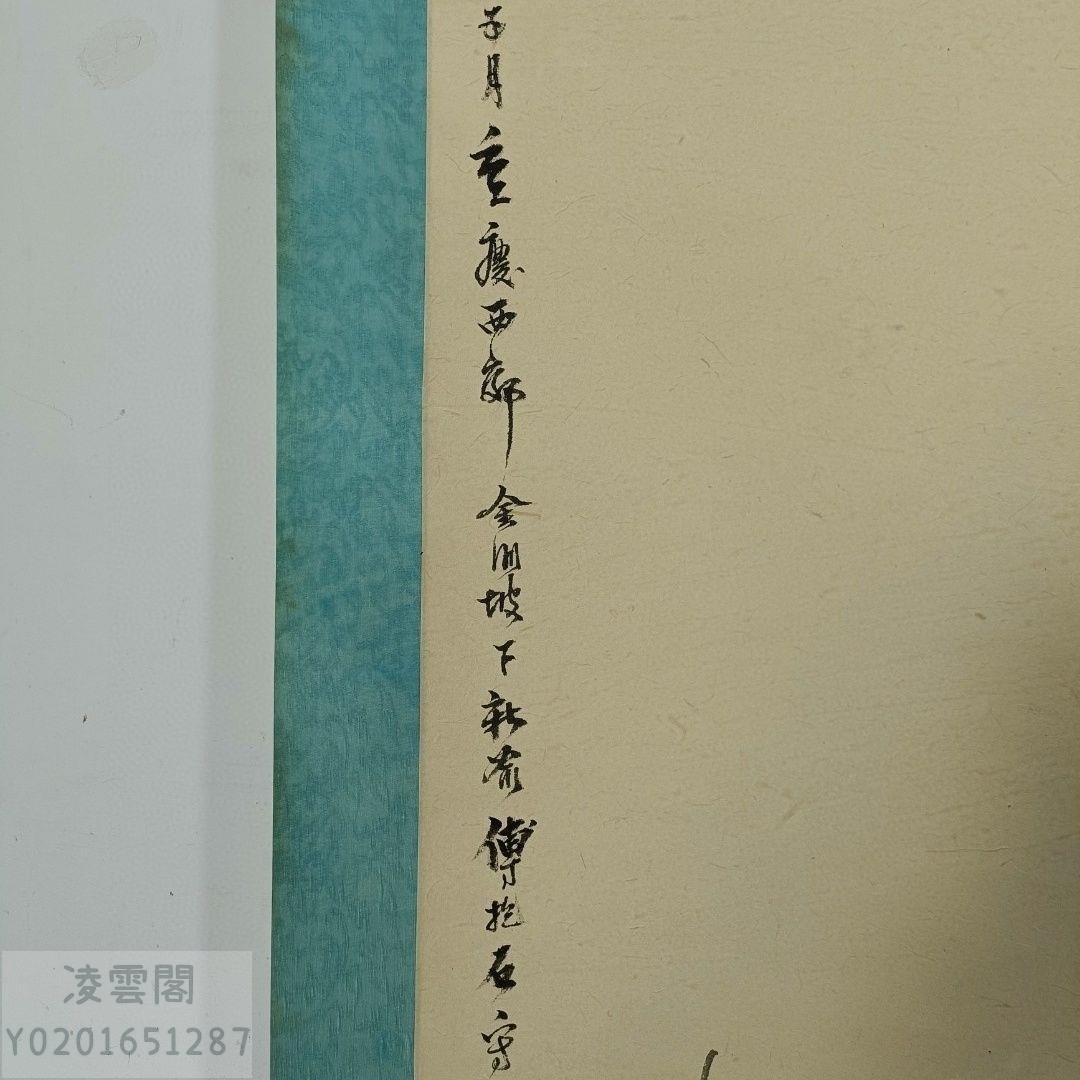 月重慶西郊金剛坡下新喻傅抱石寫
凌雲閣
Y0201651287